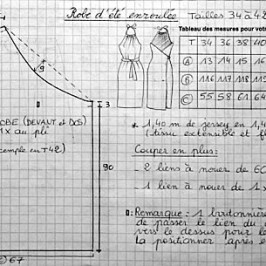 Robe d'été enroulée Tailles 34 à 42
Tableau des mesures pour votr
T 34 36 38 40
A 13 14 15 16
B 116 117 118 11
C 55 58 61 64
9
3
OBE (DEVANT et DOS)
1X au pli
emple en T42)
90
67
* 1,40 m de jersey en 1,4
(tissu extensible et fl
Couper en plus:
- 2 liens à nouer de 60
- 1 lien à nouer de 1
Remarque: 1 boutonnière
de passer le lien du
vers le dessus pour le
la positionner après e